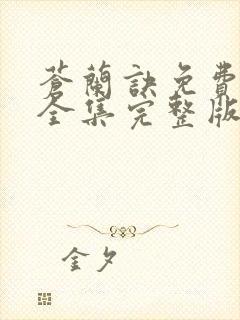 蒼蘭訣免費
全集完整版
金夕